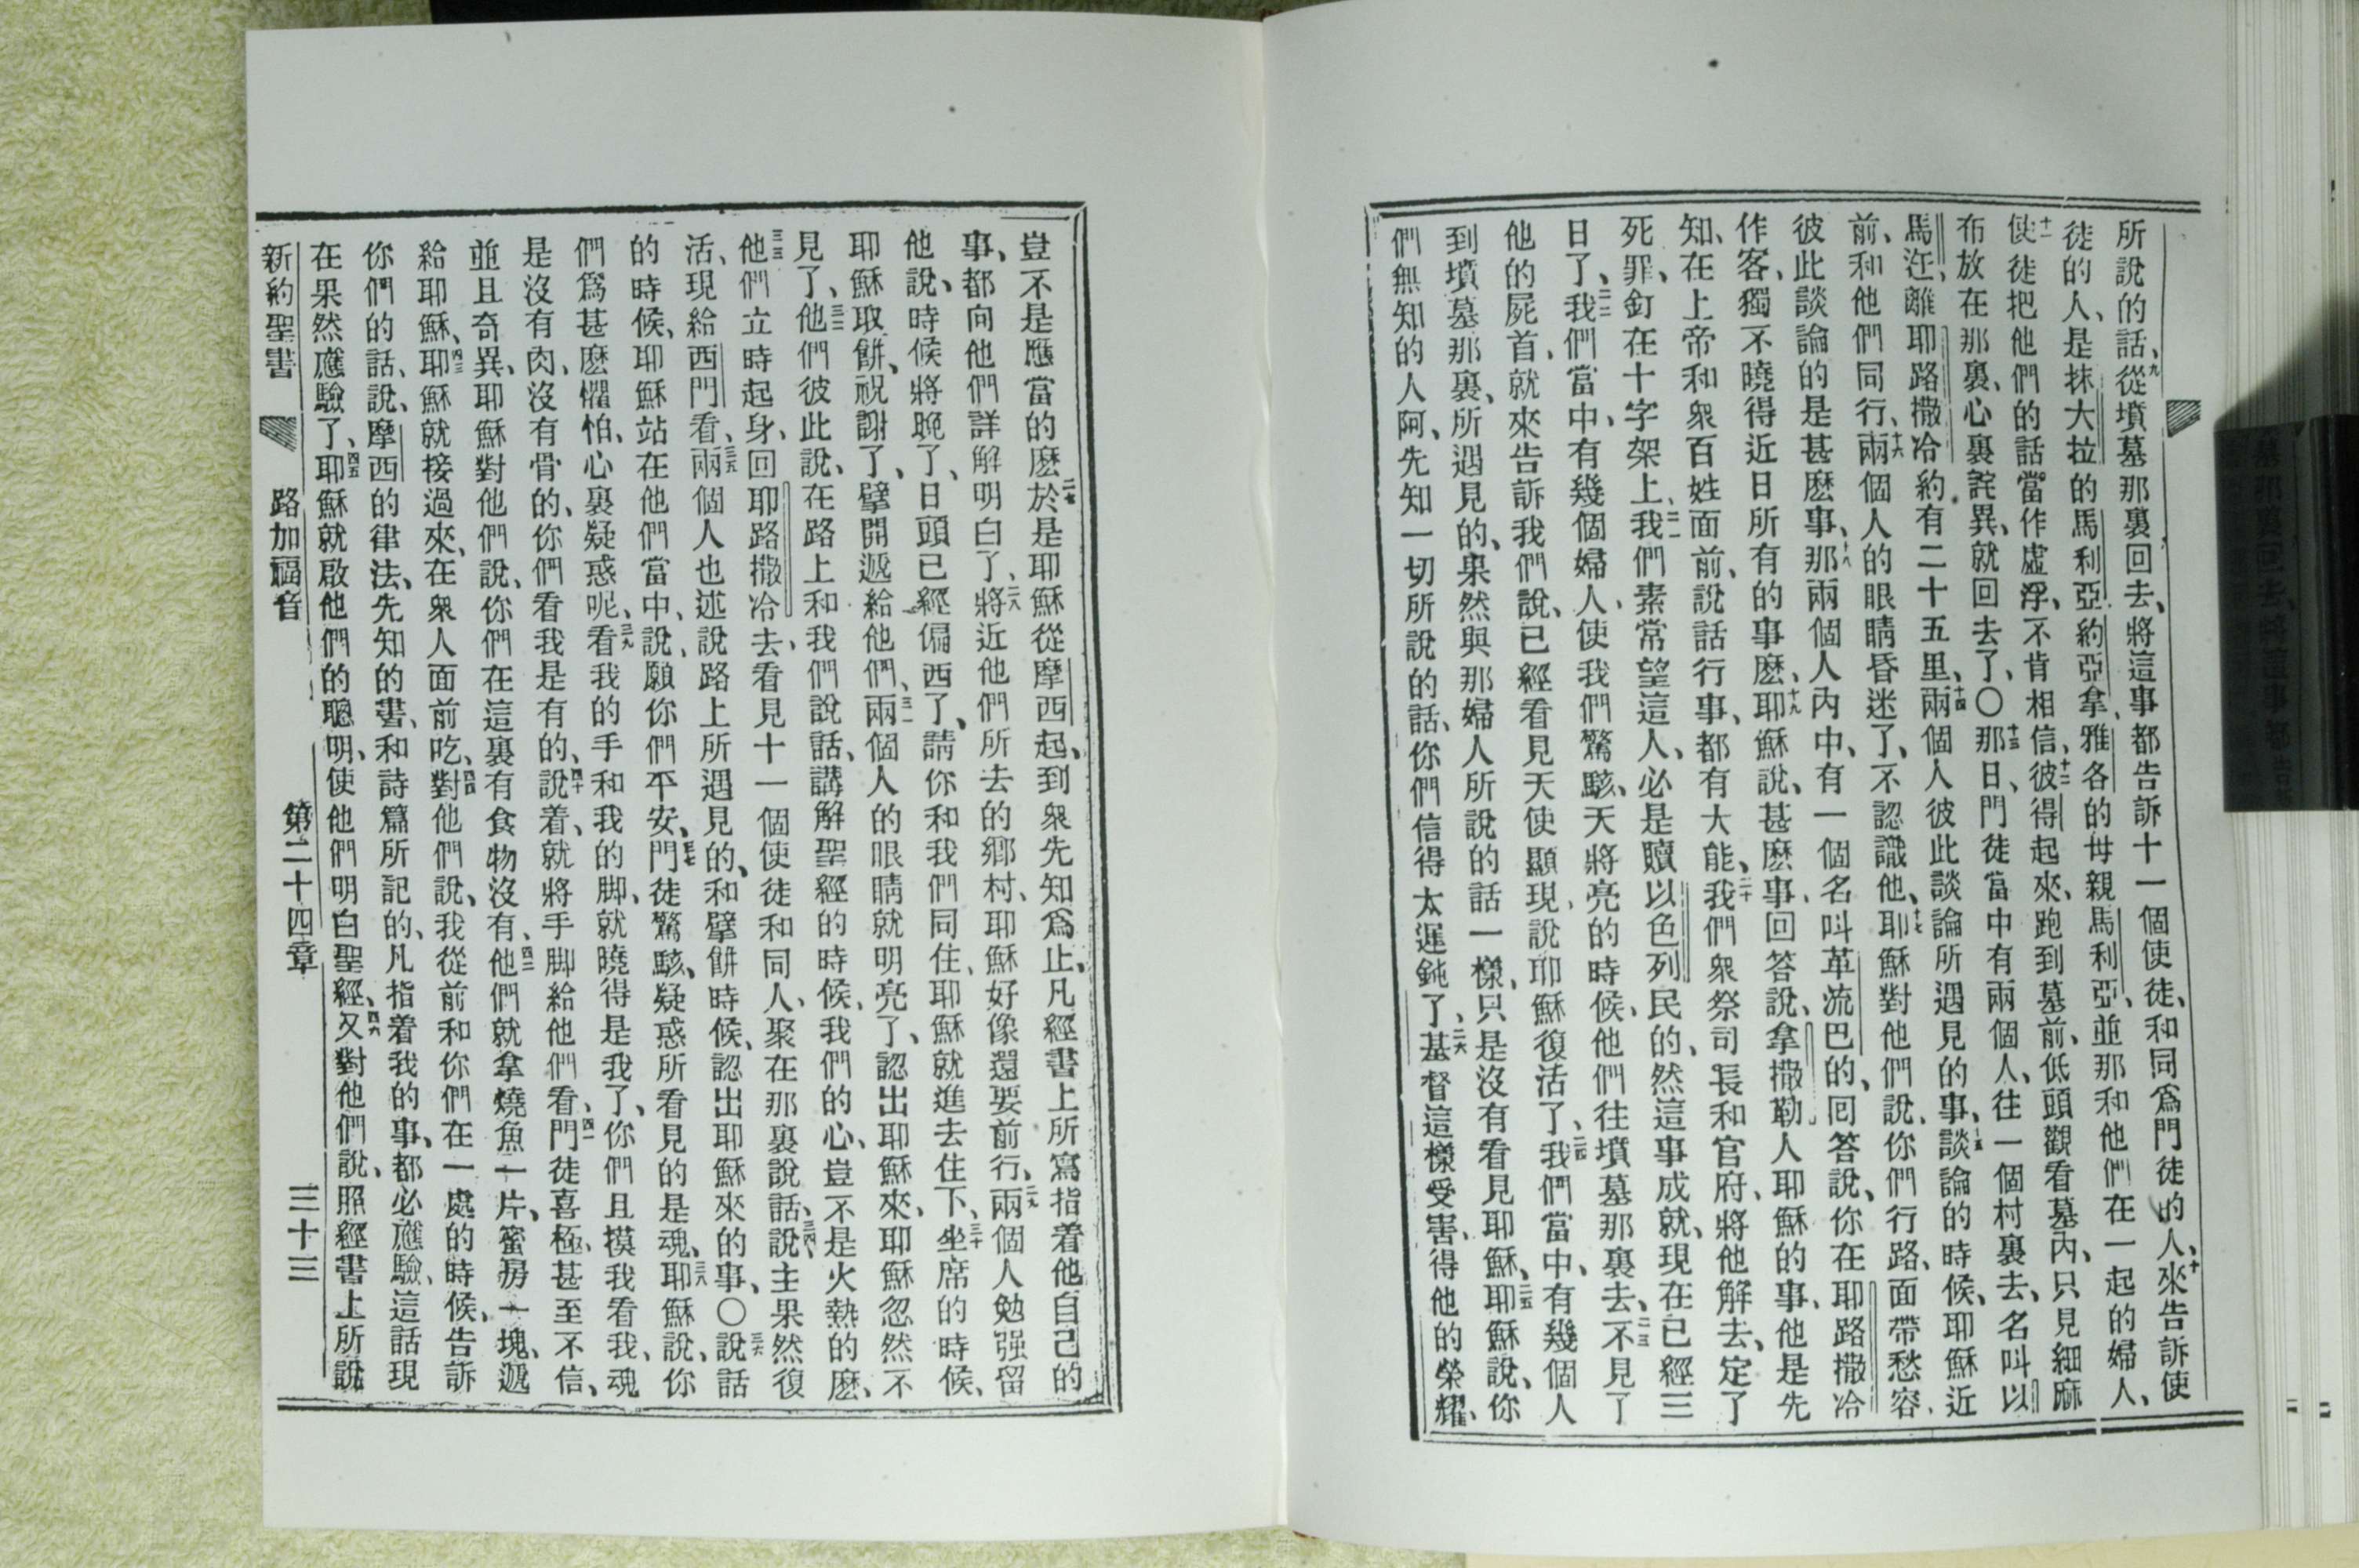 所說的話、九從墳墓那裏回去、將這事都告訴十一個使徒、和同爲門徒的人、十來告訴使
徒的人、是抹大拉的馬利亞、約亞拿、雅各的母親馬利亞、並那和他們在一起的婦人、
十一使徒把他們的話當作虛浮、不肯相信、十二彼得起來、跑到墓前、低頭觀看墓內、只見細麻
布放在那裏、心裏詫異、就回去了、〇十三那日、門徒當中有兩個人、往一個村裏去、名叫以
馬迕、離耶路撒冷約有二十五里、十四兩個人彼此談論所遇見的事、十五談論的時候、耶穌近
前、和他們同行、十六兩個人的眼睛昏迷了、不認識他、十七耶穌對他們說、你們行路、面帶愁容、
彼此談論的是甚麽事、十八那兩個人內中、有一個名叫革流巴的、回答說、你在耶路撒冷
作客、獨不曉得近日所有的事麽、十九耶穌說、甚麽事、回答說、拿撒勒人耶穌的事、他是先
知、在上帝和衆百姓面前、說話行事、都有大能、二十我們衆祭司長和官府、將他解去、定了
死罪、釘在十字架上、二一我們素常望這人、必是贖以色列民的、然這事成就、現在已經三
日了、二二我們當中、有幾個婦人、使我們驚駭、天將亮的時候、他們往墳墓那裏去、二三不見了
他的屍首、就來告訴我們說、已經看見天使顯現、說耶穌復活了、二四我們當中、有幾個人
到墳墓那裏、所遇見的、果然與那婦人所說的話一樣、只是沒有看見耶穌、二五耶穌說、你
們無知的人阿、先知一切所說的話、你們信得太遲鈍了、二六基督這樣受害、得他的榮耀、
豈不是應當的麽、二七於是耶穌從摩西起、到衆先知爲止、凡經書上所寫指着他自己的
事、都向他們詳解明白了、二八將近他們所去的鄉村、耶穌好像還要前行、二九兩個人勉强留
他說、時候將晚了、日頭已經偏西了、請你和我們同住、耶穌就進去住下、三十坐席的時候、
耶穌取餅、祝謝了、擘開遞給他們、三一兩個人的眼睛就明亮了、認出耶穌來、耶穌忽然不
見了、三二他們彼此說、在路上和我們說話、講解聖經的時候、我們的心、豈不是火熱的麽、
三三他們立時起身、回耶路撒冷去、看見十一個使徒和同人、聚在那裏說話、三四說主果然復
活、現給西門看、三五兩個人也述說路上所遇見的、和擘餅時候、認出耶穌來的事、〇三六說話
的時候、耶穌站在他們當中、說、願你們平安、三七門徒驚駭、疑惑所看見的是魂、三八耶穌說、你
們爲甚麽懼怕、心裏疑惑呢、三九看我的手和我的脚、就曉得是我了、你們且摸我看我、魂
是沒有肉、沒有骨的、你們看我是有的、四十說着、就將手脚給他們看、四一門徒喜極、甚至不信、
並且奇異、耶穌對他們說、你們在這裏有食物沒有、四二他們就拿燒魚一片、蜜房一塊、遞
給耶穌、四三耶穌就接過來、在衆人面前吃、四四對他們說、我從前和你們在一處的時候、告訴
你們的話、說、摩西的律法、先知的書、和詩篇所記的、凡指着我的事、都必應驗、這話現
在果然應驗了、四五耶穌就啟他們的聰明、使他們明白聖經、四六又對他們說、照經書上所說
新約聖書 路加福音 第二十四章 三十三